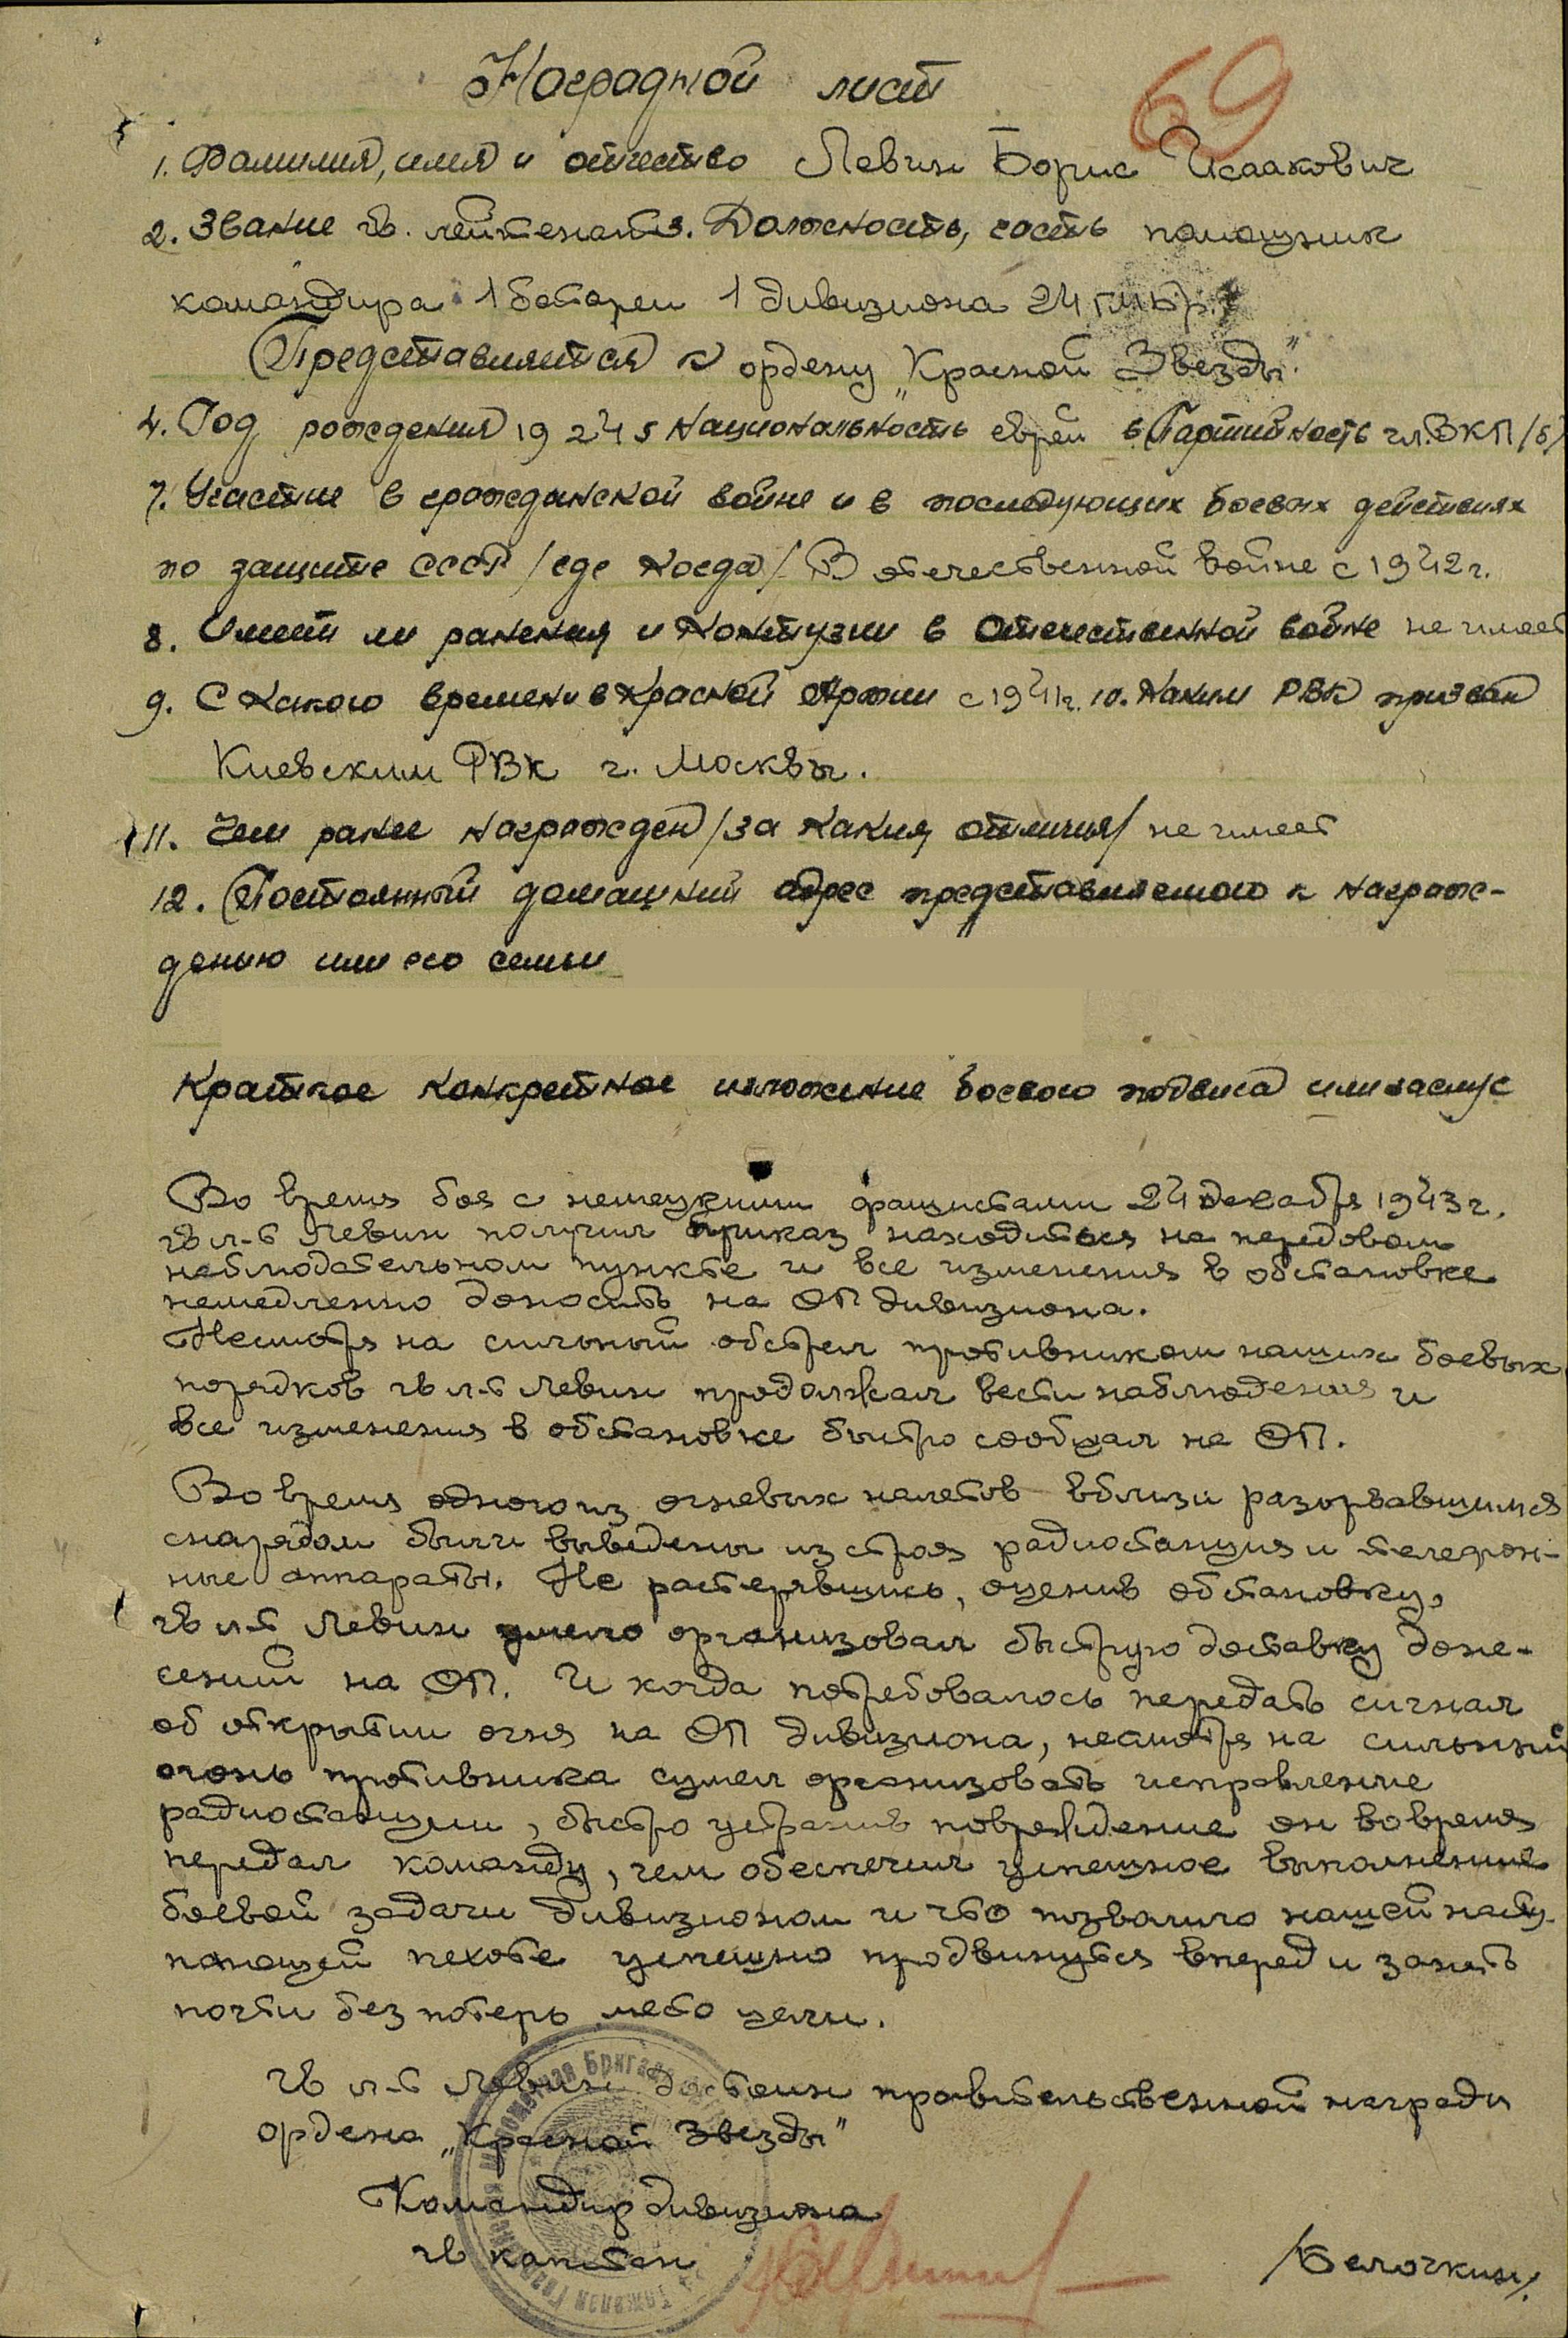 Наградной лист
69
1. Фамилия, имя и отчество Левин Борис Исаакович
2. Звание гв. лейтенант 3. Должность, часть помощник
командира 1 батареи 1 дивизиона 24 гмбр.
Представляется к ордену „Красной Звезды".
4. Год рождения 1924 5 Национальность еврей 6 Партийность чл. ВКП/б/
7. Участие в гражданской войне и в последующих боевых действиях
по защите СССР /где когда/ В отечественной войне с 1942 г.
8. Имеет ли ранения и контузии в Отечественной войне не имеет
9. С какого времени в Красной Армии с 1941 г. 10. Каким РВК призван
Киевским РВК г. Москвы.
11. Чем ранее награжден /за какия отличия/ не имеет
12. Постоянный домашний адрес представляемого к награж-
дению или его семьи
Краткое конкретное изложение боевого подвига или заслуг
Во время боя с немецкими фашистами 24 декабря 1943 г.
гв л-т Левин получил приказ находиться на передовом
наблюдательном пункте и все изменения в обстановке
немедленно доносить на ОП дивизиона.
Несмотря на сильный обстрел противником наших боевых
порядков гв л-т Левин продолжал вести наблюдения и
все изменения в обстановке быстро сообщал на ОП.
Во время одного из огневых налетов вблизи разорвавшимся
снарядом были выведены из строя радиостанция и телефон-
ные аппараты. Не растерявшись, оценив обстановку,
гв л-т Левин умело организовал быструю доставку доне-
сений на ОП. И когда потребовалось передать сигнал
об открытии огня на ОП дивизиона, несмотря на сильный
огонь противника сумел организовать исправление
радиостанции, быстро устранив повреждение он вовремя
передал команду, чем обеспечил успешное выполнение
боевой задачи дивизионом и что позволило нашей насту-
пающей пехоте успешно продвинуться вперед и занять
почти без потерь место цели.
гв л-т Левин достоин правительственной награды
ордена „Красной Звезды"
Командир дивизиона
гв капитан /Белочкин/.